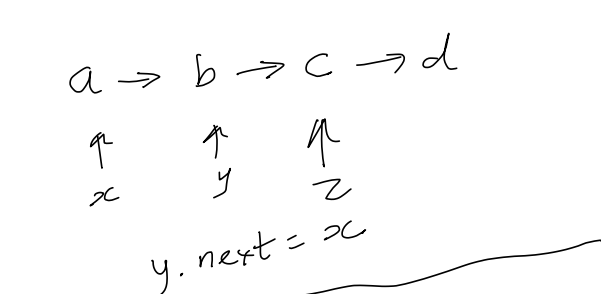 a → b → c → d
↑ ↑ ↑
x y z
y. next = x